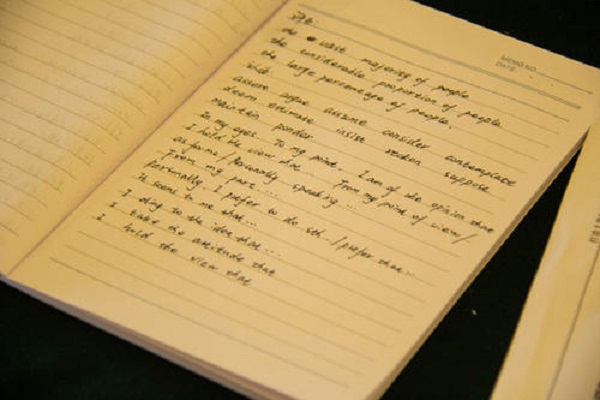 MEMO NO.
DATE
the vast majority of people
the considerable proportion of people
the large percentage of people.
assert argue assume consider contemplate
deem estimate insist reckon suppose
Maintain ponder
In my eyes. To my point... I am of the opinion that
I hold the view that... From my point of view/
as for me / Personally speaking
From my part....
Personally, I prefer to do sth. / prefer that...
It seems to me that...
I cling to the idea that....
I take the attitude that
I hold the view that